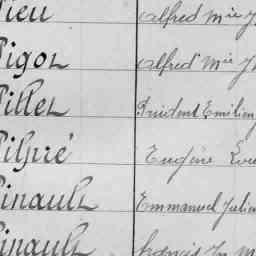 ieu Alfred Mie J
Pigot Alfred Mie J
Pillet Prudent Emilien
Pilpré Eugène Lou
Pinault Emmanuel Julien
inault Francis J M